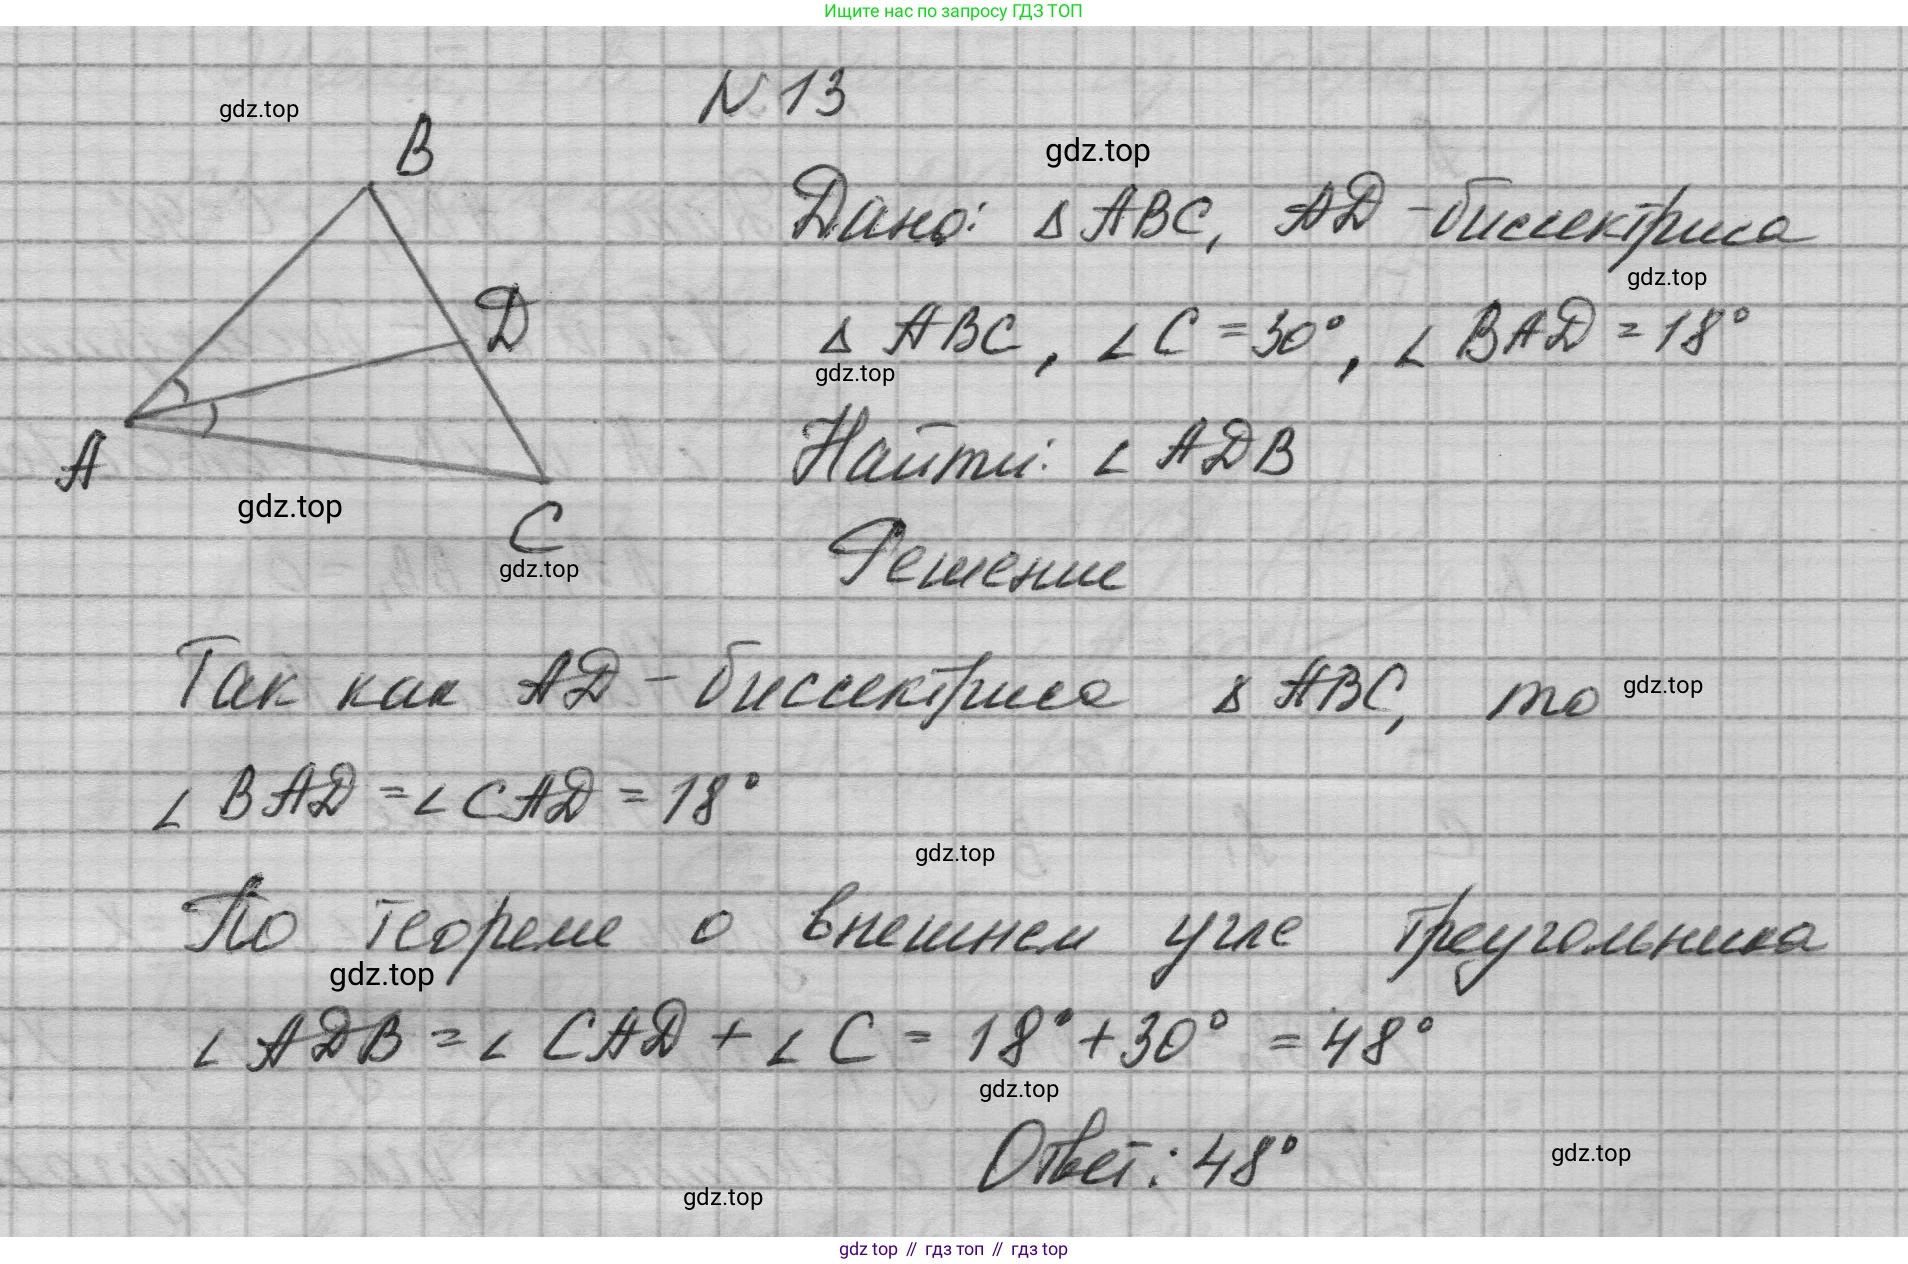 Ищите нас по запросу ГДЗ ТОП
N 13
gdz.top
B
gdz.top
Дано: Δ ABC, AD - биссектриса
gdz.top
Δ ABC, ∠ C = 30°, ∠ BAD = 18°
gdz.top
D
Найти: ∠ ADB
A
gdz.top
C
gdz.top
Решение
Так как AD - биссектриса Δ ABC, то
gdz.top
∠ BAD = ∠ CAD = 18°
gdz.top
По теореме о внешнем угле треугольника
gdz.top
∠ ADB = ∠ CAD + ∠ C = 18° + 30° = 48°
gdz.top
Ответ: 48°
gdz.top
gdz.top
gdz top // гдз топ // гдз top